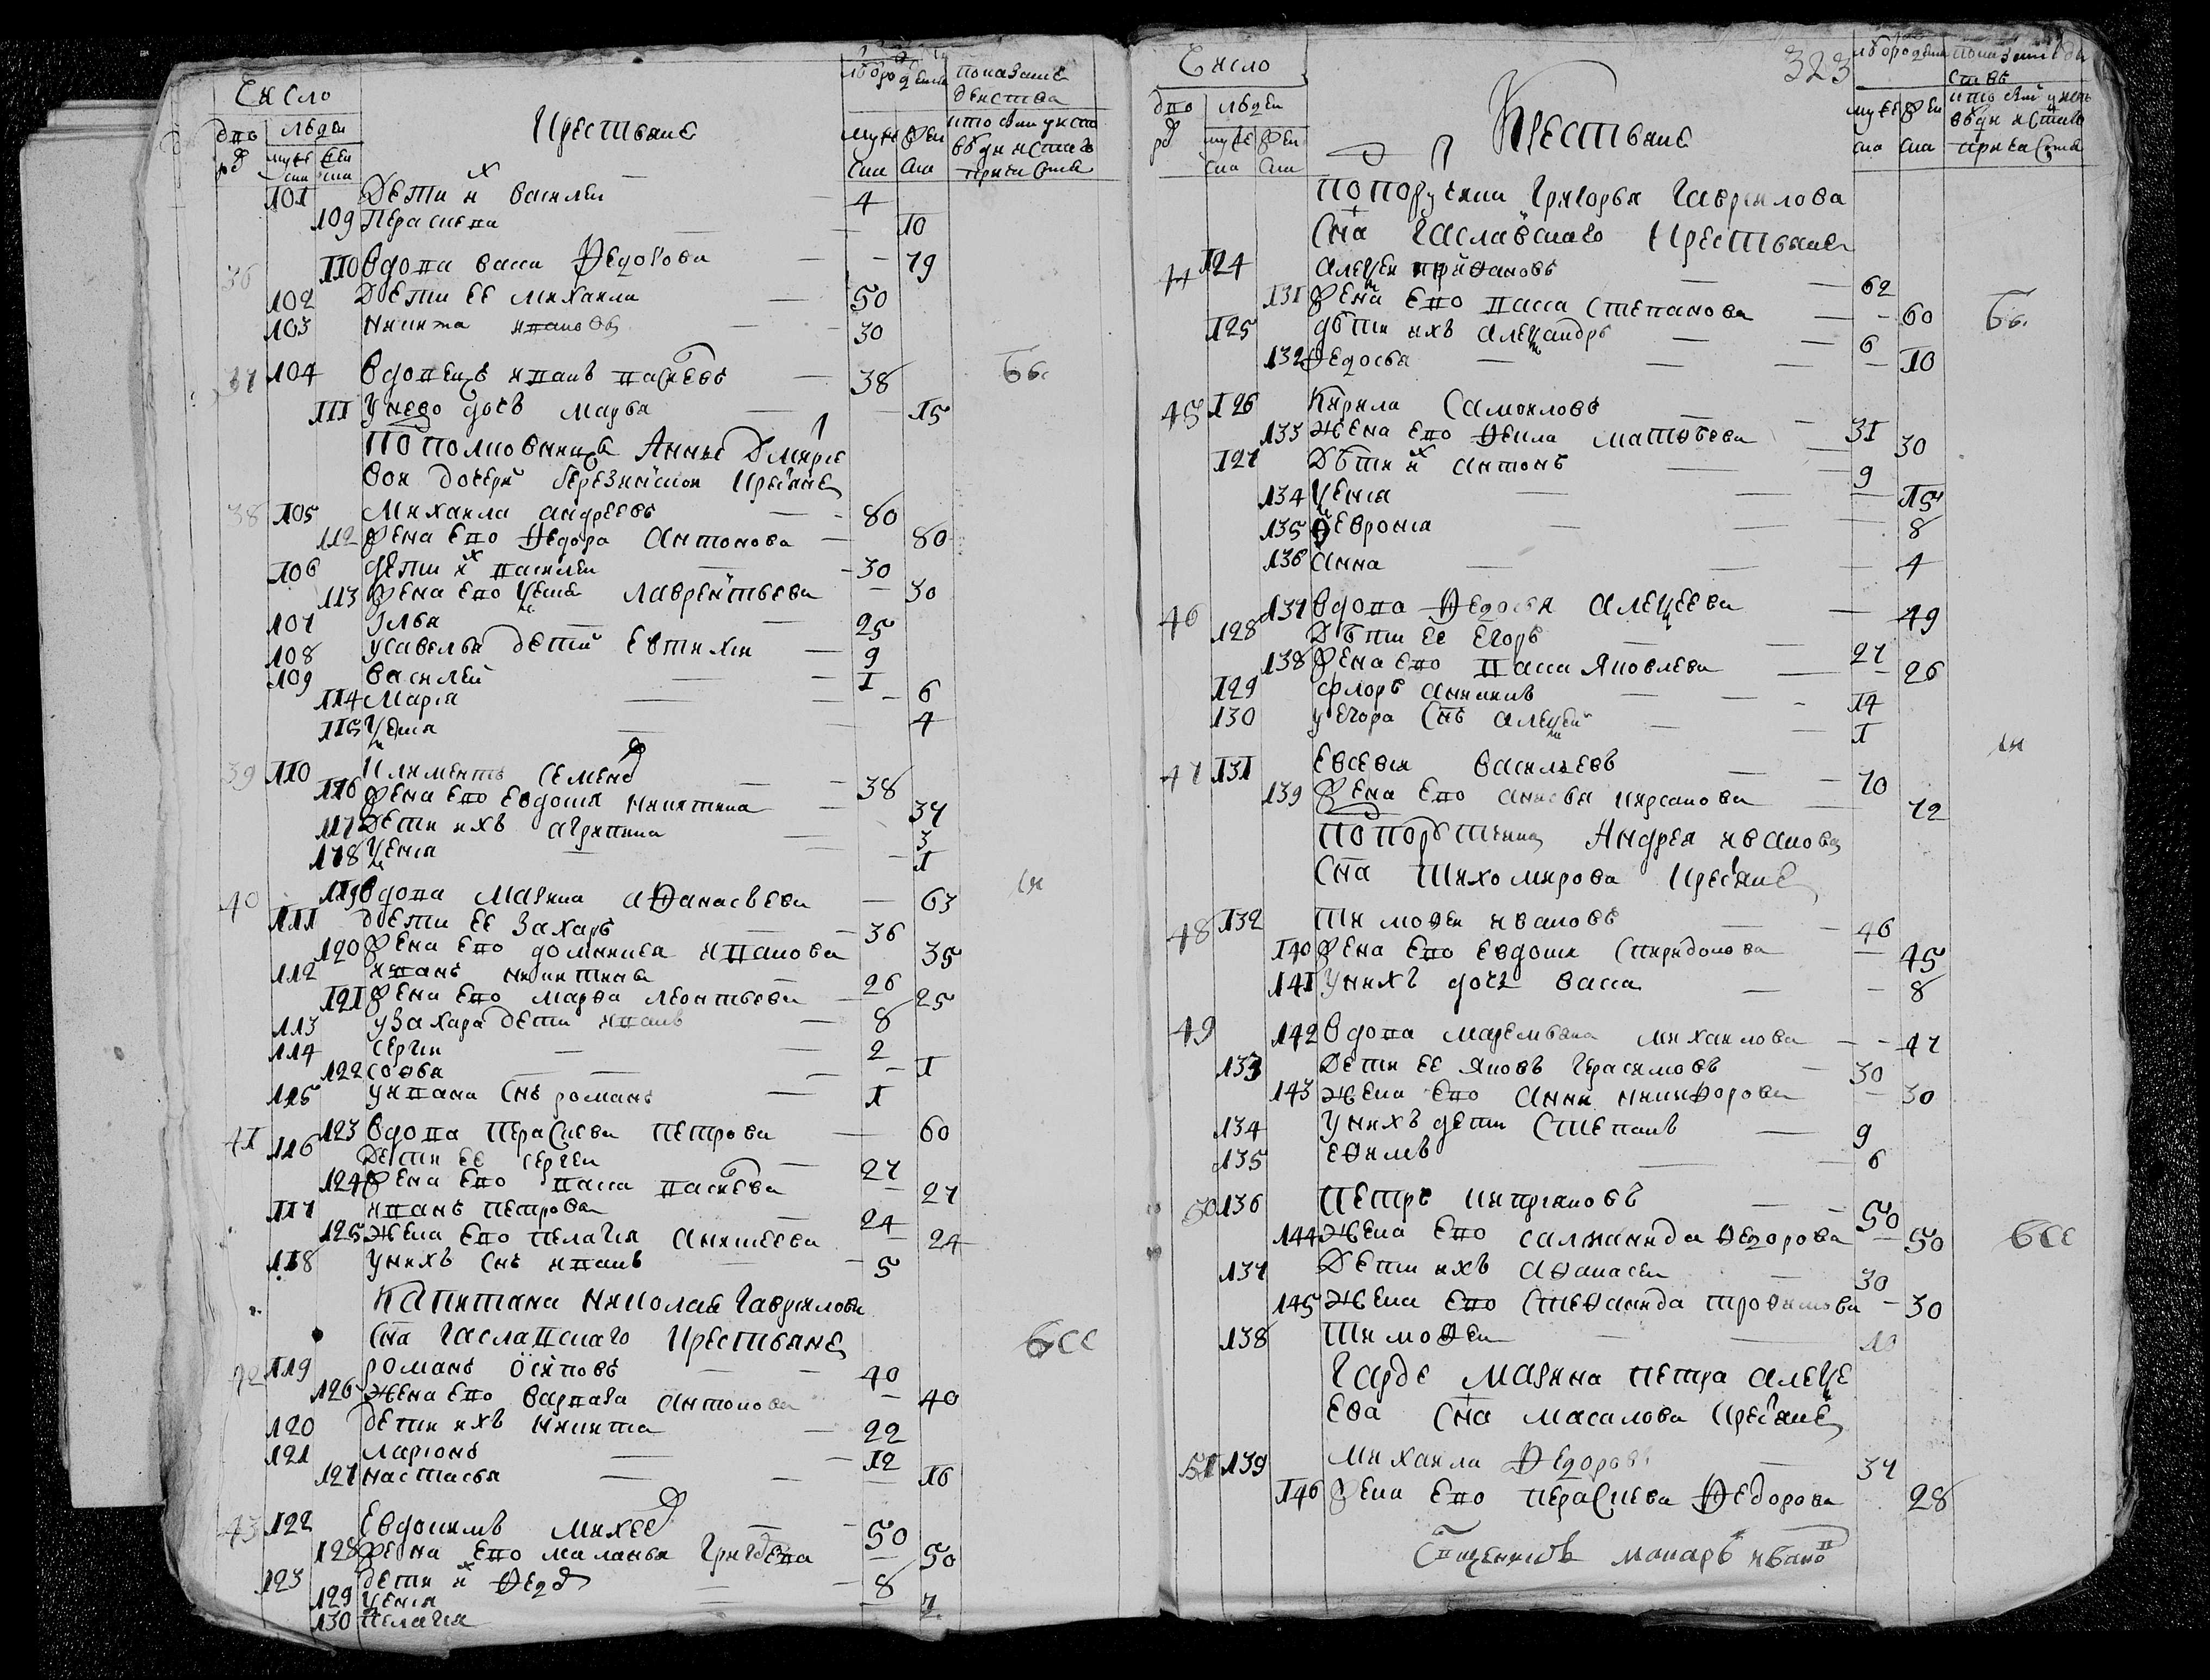 Число
дво
ръ
людеи
муже
ска
жен
ска
Крестьяне
лѣ
от рождения
муже
ска
жен
ска
показание
действа
кто были у исповеди и святаго причастия
101 Дети их Василеи — 4
109 Параскева — 10
36 110 Вдова Васса Федорова — 79
102 Дети ее Михаила — 50
103 Никита Ивановъ — 30
37 104 Вдовецъ Иванъ Васиевъ — 38
Ббс
111 У нево дочь Марѳа — 15
Подполковника Анны Дмитрие
вой дочери Березниковой Крестьяне
38 105 Михаила Андреевъ — 80
112 Жена ево Ѳедора Антонова — 80
106 дети их Василеи — 30
113 Жена ево Ксения Лаврентьева — 30
107 Илья — 25
108 У Савелья дети Евтихеи — 9
109 Василей — 1
114 Марія — 6
115 Ксения — 4
39 110 Климентъ Семенов — 38
116 Жена ево Евдокия Никитина — 37
117 Дети ихъ Агрипина — 3
118 Ксения — 1
40 119 Вдова Марина Аѳанасьева — 63
111 Дети ее Захаръ — 36
120 Жена ево Домникея Иванова — 35
112 Иванъ Никитинъ — 26
121 Жена ево Марѳа Леонтьева — 25
113 У Захара дети Иванъ — 8
114 Сергеи — 2
122 Соѳья — 1
115 У Ивана снъ Романъ — 1
41 123 Вдова Параскева Петрова — 60
116 Дети ее Сергеи — 27
124 Жена ево Васса Васиева — 27
117 Иванъ Петровъ — 24
125 Жена ево Пелагия Аникеева — 24
118 У нихъ снъ Иванъ — 5
Капитана Николая Гаврилова
сна Чаславскаго Крестьяне
бсс
42 119 Романъ Осиповъ — 40
126 Жена ево Варвара Антонова — 40
120 Дети ихъ Никита — 22
121 Ларіонъ — 12
127 Настасья — 16
43 122 Евдокимъ Михеев — 50
128 Жена ево Маланья Григорьева — 50
123 Дети их Ѳедор — 8
129 Ксения — 7
130 Пелагия
323
Число
дво
ръ
людеи
муже
ска
жен
ска
Крестьяне
муже
ска
жен
ска
Подпоручика Григорья Гаврилова
сна Чаславскаго Крестьяне
44 124 Алексеи — 62
131 Жена ево Васса Степанова — 60
Ббс
125 дѣти ихъ Александръ — 6
132 Ѳедосья — 10
45 126 Кирила Самоиловъ — 31
133 Жена ево Ѳекла Матвѣева — 30
127 Дѣти их Антонъ — 9
134 Ксения — 15
135 Ѳеврония — 8
136 Анна — 4
46 137 Вдова Ѳедосья Алексеева — 49
128 Дѣти ее Егоръ — 27
138 Жена ево Васса Яковлева — 26
129 Флоръ Аникинъ — 14
130 У Егора снъ Алексей — 1
47 131 Евсевеи Васильевъ — 70
139 Жена ево Анисья Кирсанова — 72
Подпорутчика Андрея Иванова
сна Тихомирова Крестьяне
48 132 Тимоѳеи Ивановъ — 46
140 Жена ево Евдокия Спиридонова — 45
141 У нихъ дочь Васса — 8
49 142 Вдова Маремьяна Михаилова — 47
133 Дети ее Яковъ Герасимовъ — 30
143 Жена ево Анна Никиѳорова — 30
134 У нихъ дети Степанъ — 9
135 Еѳимъ — 6
50 136 Петръ Киприановъ — 50
144 Жена ево Саламанида Ѳедорова — 50
бсс
137 Дети ихъ Аѳанасеи — 30
145 Жена ево Стеѳанида Троѳимова — 30
138 Тимоѳеи — 10
Гарде Марина Петра Алексе
ева сна Масалова Крестьяне
51 139 Михаила Ѳедоровъ — 34
146 Жена ево Параскева Ѳедорова — 28
Священникъ Макаръ Иванов